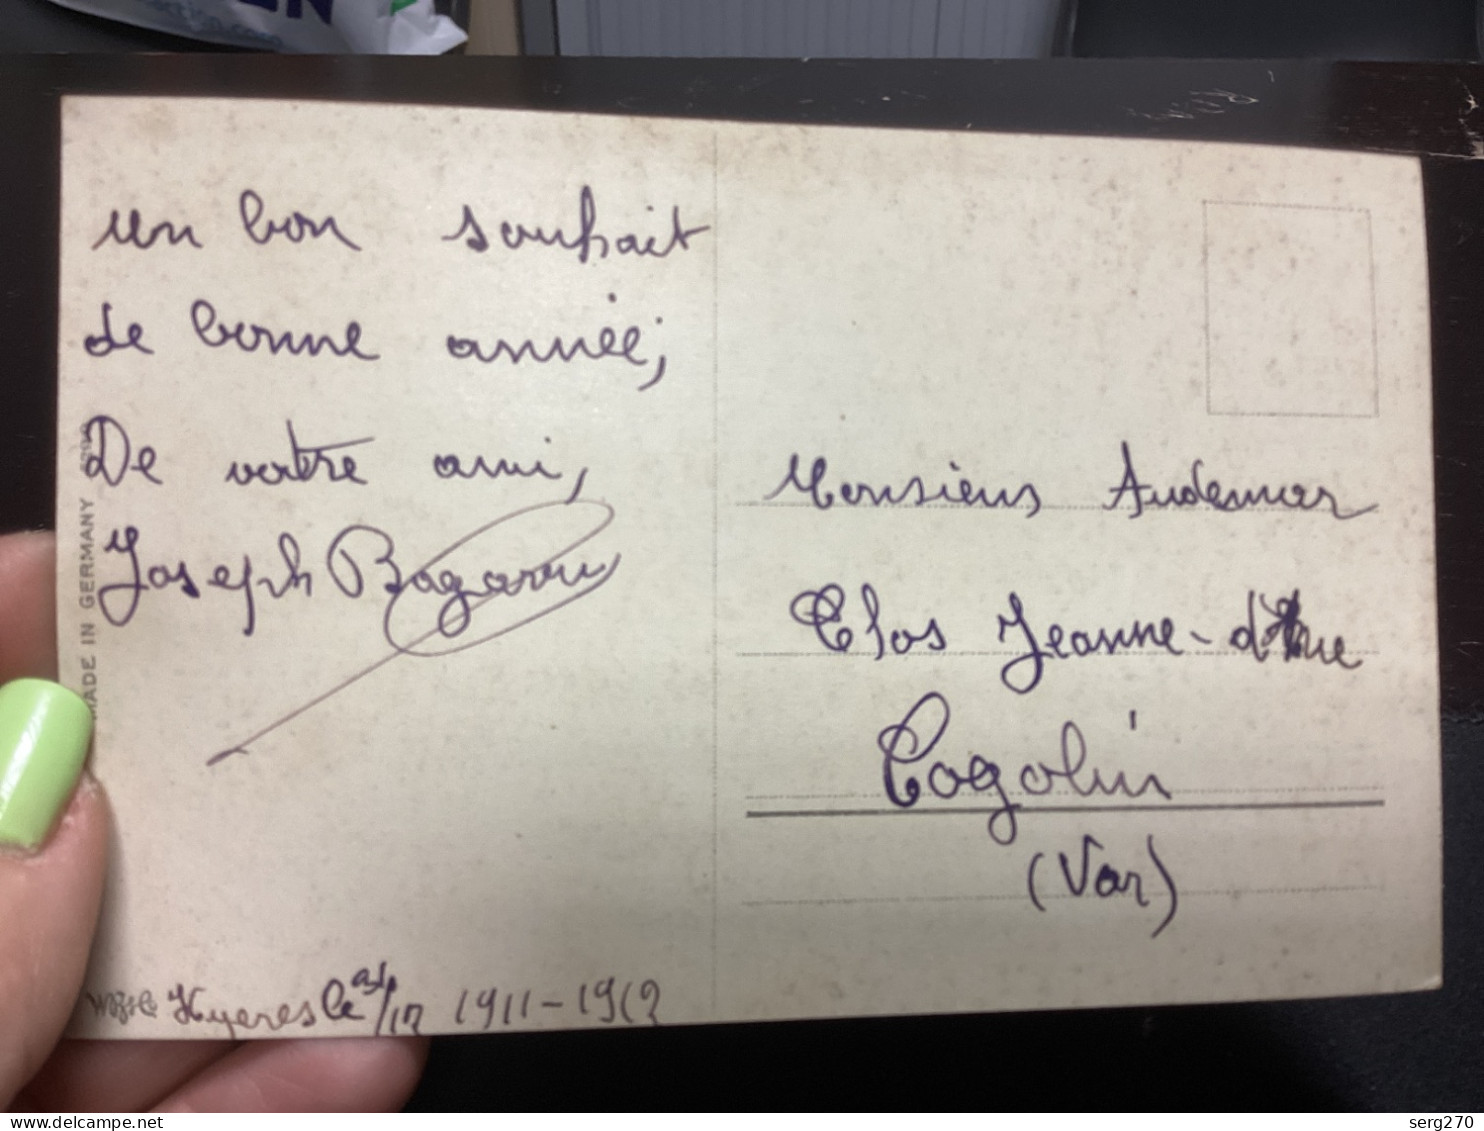 un bon souhait
de bonne année;
De votre ami,
Joseph
MADE IN GERMANY
Hyeres le 31/12 1911-1912
Monsieur Audemar
Clos Jeanne-d'Arc
Cogolin
(Var)
www.delcampe.net
serg270